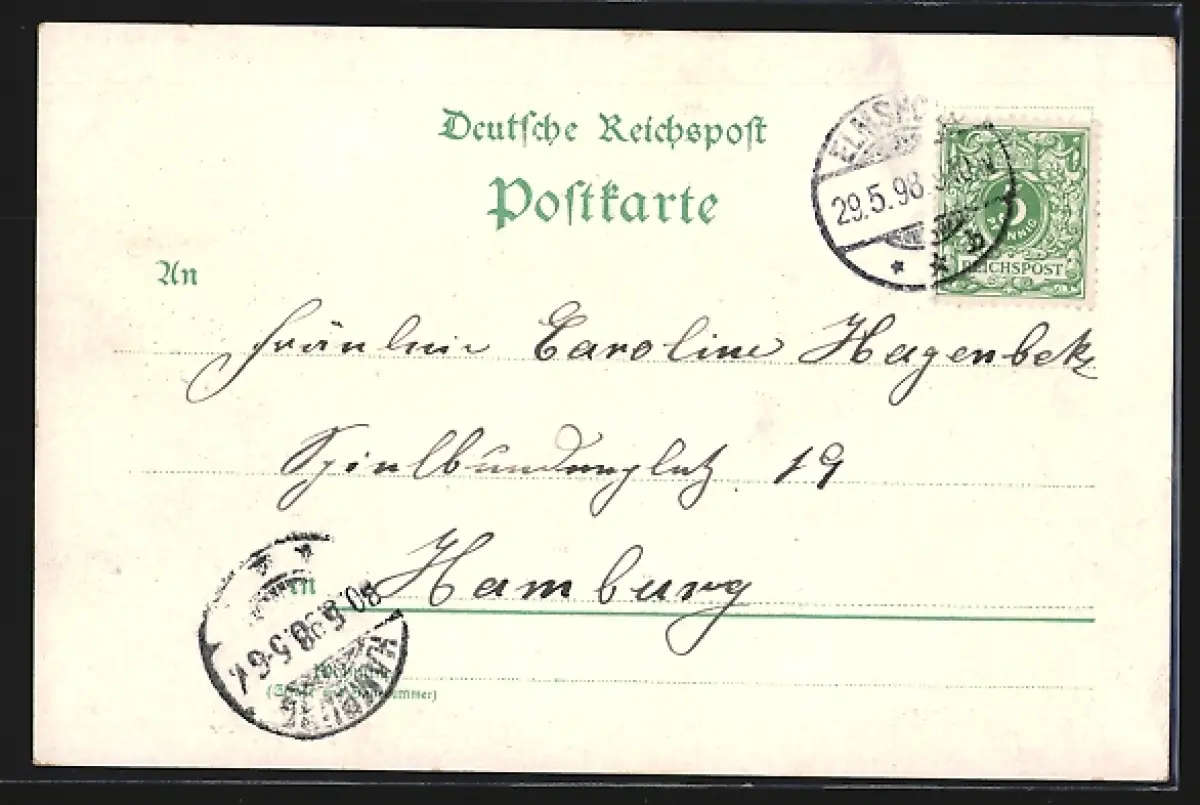 Deutsche Reichspost
Postkarte
ELMSHO
29.5.98
b
PFENNIG
REICHSPOST
An
Fräulein Caroline Hagenbek
Spielbudenplatz 19
in Hamburg
30.5.98.5-6
HAMBURG
Wohnung